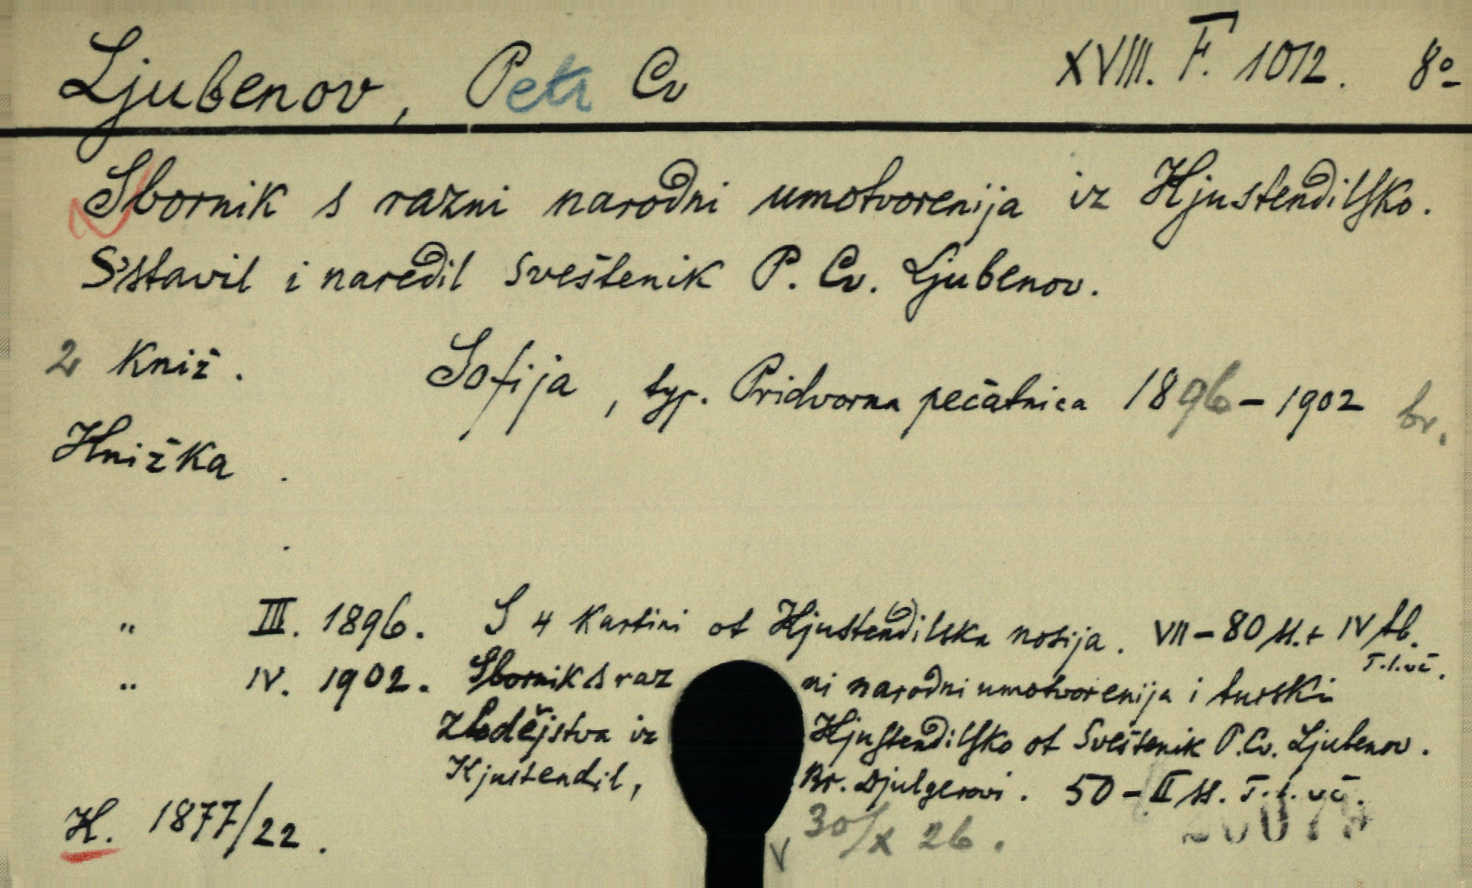 Ljubenov, Petr Cv XVIII. F. 1012. 8º
Sbornik s razni narodni umotvorenija iz Kjustendilsko.
S'stavil i naredil sveštenik P. Cv. Ljubenov.
2 kniž. Sofija, typ. Pridvorna pečatnica 1896-1902 br.
Knižka .
.
" III. 1896. S 4 kartini ot Kjustendilska nosija. VII-80 ss. + IV tb.
T. l. vč.
" IV. 1902. Sbornik s razni narodni umotvorenija i turski
zlodějstva iz Kjustendilsko ot Sveštenik P. Cv. Ljubenov.
Kjustendil, Br. Djulgerovi. 50-II ss. T. l. vč.
K. 1877/22.
v 30/X 26.